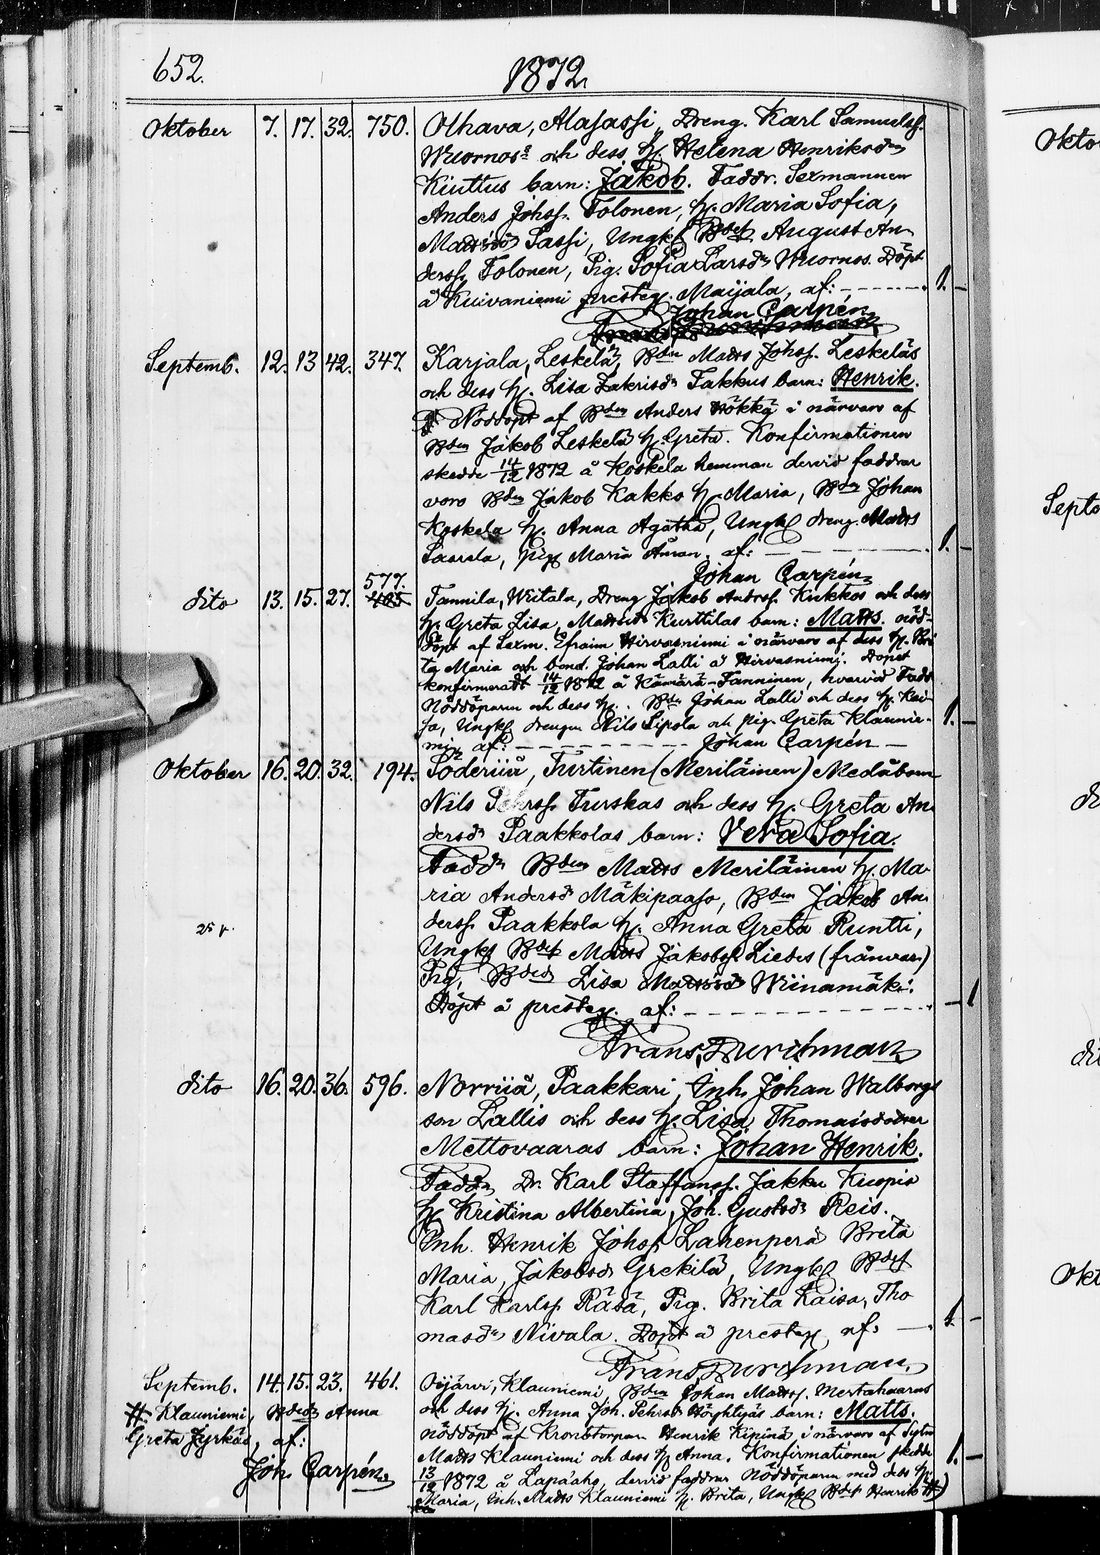 652.
1872.
Oktober 7. 17. 32. 750. Olhava, Alasassi, Dreng. Karl Samuelss.
Wuornos och dess h. Helena Henriksdr
Kinttus barn: Jakob. Faddr. Sexmannen
Anders Johss. Tolonen, h. Maria Sofia,
Mattsdr Sassi, Ungk. Bdes. August An-
derss. Tolonen, Pig. Sofia Larsdr Wuornos. Döpt
å Kuivaniemi presteg. Maijala, af: 1.
Johan Carpén
Septemb. 12. 13 42. 347. Karjala, Leskelä, Bdn Matts Johss. Leskeläs
och dess h. Lisa Zakrisdr Takkus barn: Henrik.
Nöddöpt af Bden Anders Hökkä i närvaro af
Bden Jakob Leskelä h. Greta. Konfirmationen
skedde 14/12 1872 å Koskela hemman dervid faddrar
voro Bden Jakob Kakko h. Maria, Bden Johan
Koskela h. Anna Agatha, Ungk. dreng Matts
Saarela, pig. Maria Åman. af: 1.
Johan Carpén
577.
dito 13. 15. 27. 485 Tannila, Witala, Dreng Jakob Andrss. Kukkos och dess
h. Greta Lisa, Mattsdr Kurttilas barn: Matts. nöd-
döpt af Sexm. Efraim Hirvasniemi i närvaro af dess h. Bri-
ta Maria och bond. Johan Lalli å Hirvasniemi. Dopet
konfirmeradt 14/12 1872 å Kämärä-Tanninen, hvarvid Fadd.
Nöddöparen och dess h. Bdn Johan Lalli och dess h. Kai-
sa, Ungk. drengen Nils Sipola och pig. Greta Klaunie-
mi, af: Johan Carpén 1.
Oktober 16. 20. 32. 194. Söderiiå, Turtinen (Meriläinen) Medåboen
Nils Pehrss. Turskas och dess h. Greta An-
dersdr Paakkolas barn: Vera Sofia.
Faddr Bden Matts Meriläinen h. Ma-
ria Andersdr Mäkipaaso, Bden Jakob An-
derss. Paakkola h. Anna Greta Runtti,
25 f. Ungk. Bdes. Matts Jakobss. Liedes (frånvar.)
Pig. Bded. Lisa Mattsdr Wiinamäki.
Döpt å presteg. af: 1
Frans Burchman
dito 16. 20. 36. 596. Norriiå, Paakkari, Inh. Johan Walborgs
son Lallis och dess h. Lisa Thomasdotter
Mettovaaras barn: Johan Henrik.
Faddr Dr. Karl Staffanss. Jakku Kuopio
h. Kristina Albertina, Joh. Gustsdr Reis.
Inh. Henrik Johss. Lahenperä Brita
Maria, Jakobsdr Grekilä, Ungk. Bdes.
Karl Karlss. Räsä, Pig. Brita Kaisa, Tho
masdr Nivala. Döpt å presteg. af: 1.
Frans Burchman.
Septemb. 14. 15. 23. 461. Oijärvi, Klauniemi, Bden Johan Mattss. Mertahaaras
och dess h. Anna Joh. Pehrsdr Höykkyäs barn: Matts.
nöddöpt af Kronotorpar Henrik Kipinä i närvaro af Sytn.
Matts Klauniemi och dess h. Anna. Konfirmationen skedde
13/12 1872 å Lapaäho, dervid faddrar Nöddöparen med dess h. 1.
Maria, Inh. Matts Klauniemi h. Brita, Ungk. Bdes Henrik #)
#. Klauniemi, Bdedr Anna
Greta Jyrkäs, af:
Joh. Carpén.